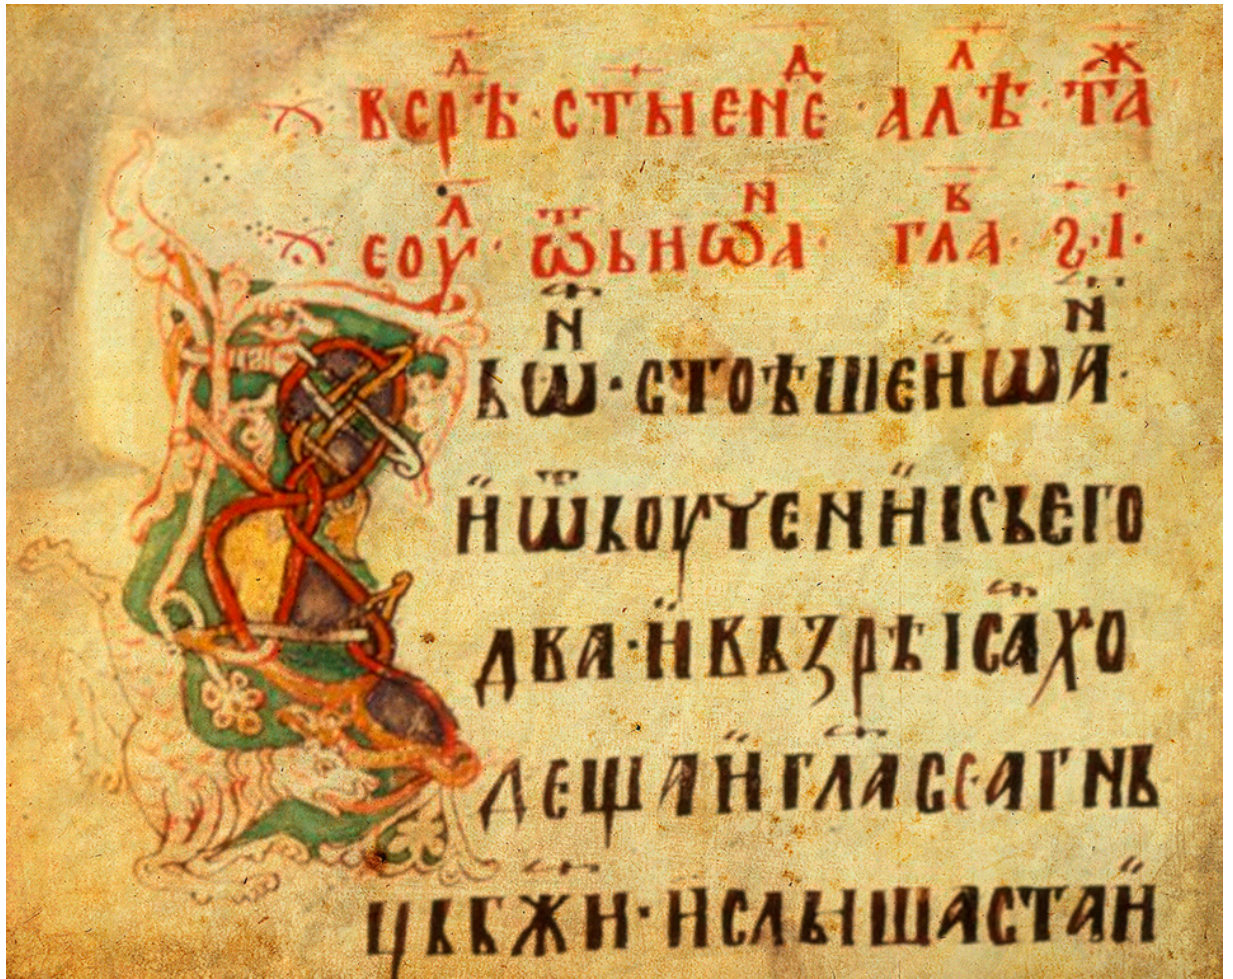 всрѣⷧ҇·стꙑенеⷣ·алⷧ҇ѣ·таⷤ
еоуⷧ҇·ѿьнѡⷩа·глаⷡ҇·ѕ·і·
вьѡⷩ҇·стоѣшеиѡаⷩ·
иѿьоученикьего
два·ивьзрѣіса҃хо
дещаигла҃сеагнь
цьбж҃и·ислышастаи